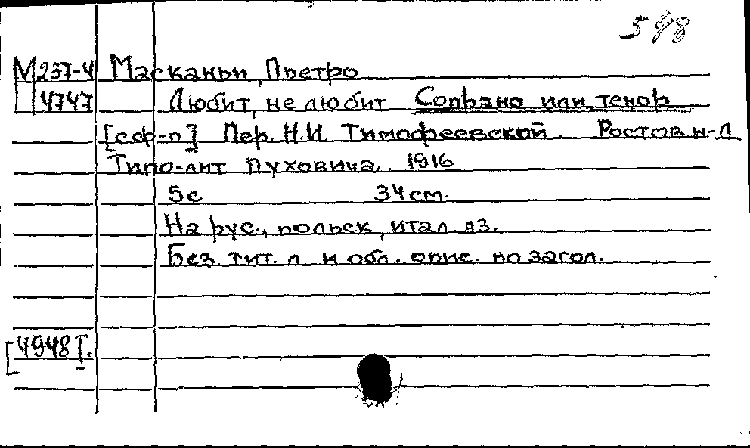 588
М237-4 Масканьи, Пьетро
4747 Любит, не любит Сопрано или тенор
[с ф-п] Пер. Н.И. Тимофеевской. Ростов н-Д
Типо-лит Пуховича, 1916
5с 34см.
На рус., польск, итал яз.
Без тит. л и обл. опис. по загол.
[4948]I.